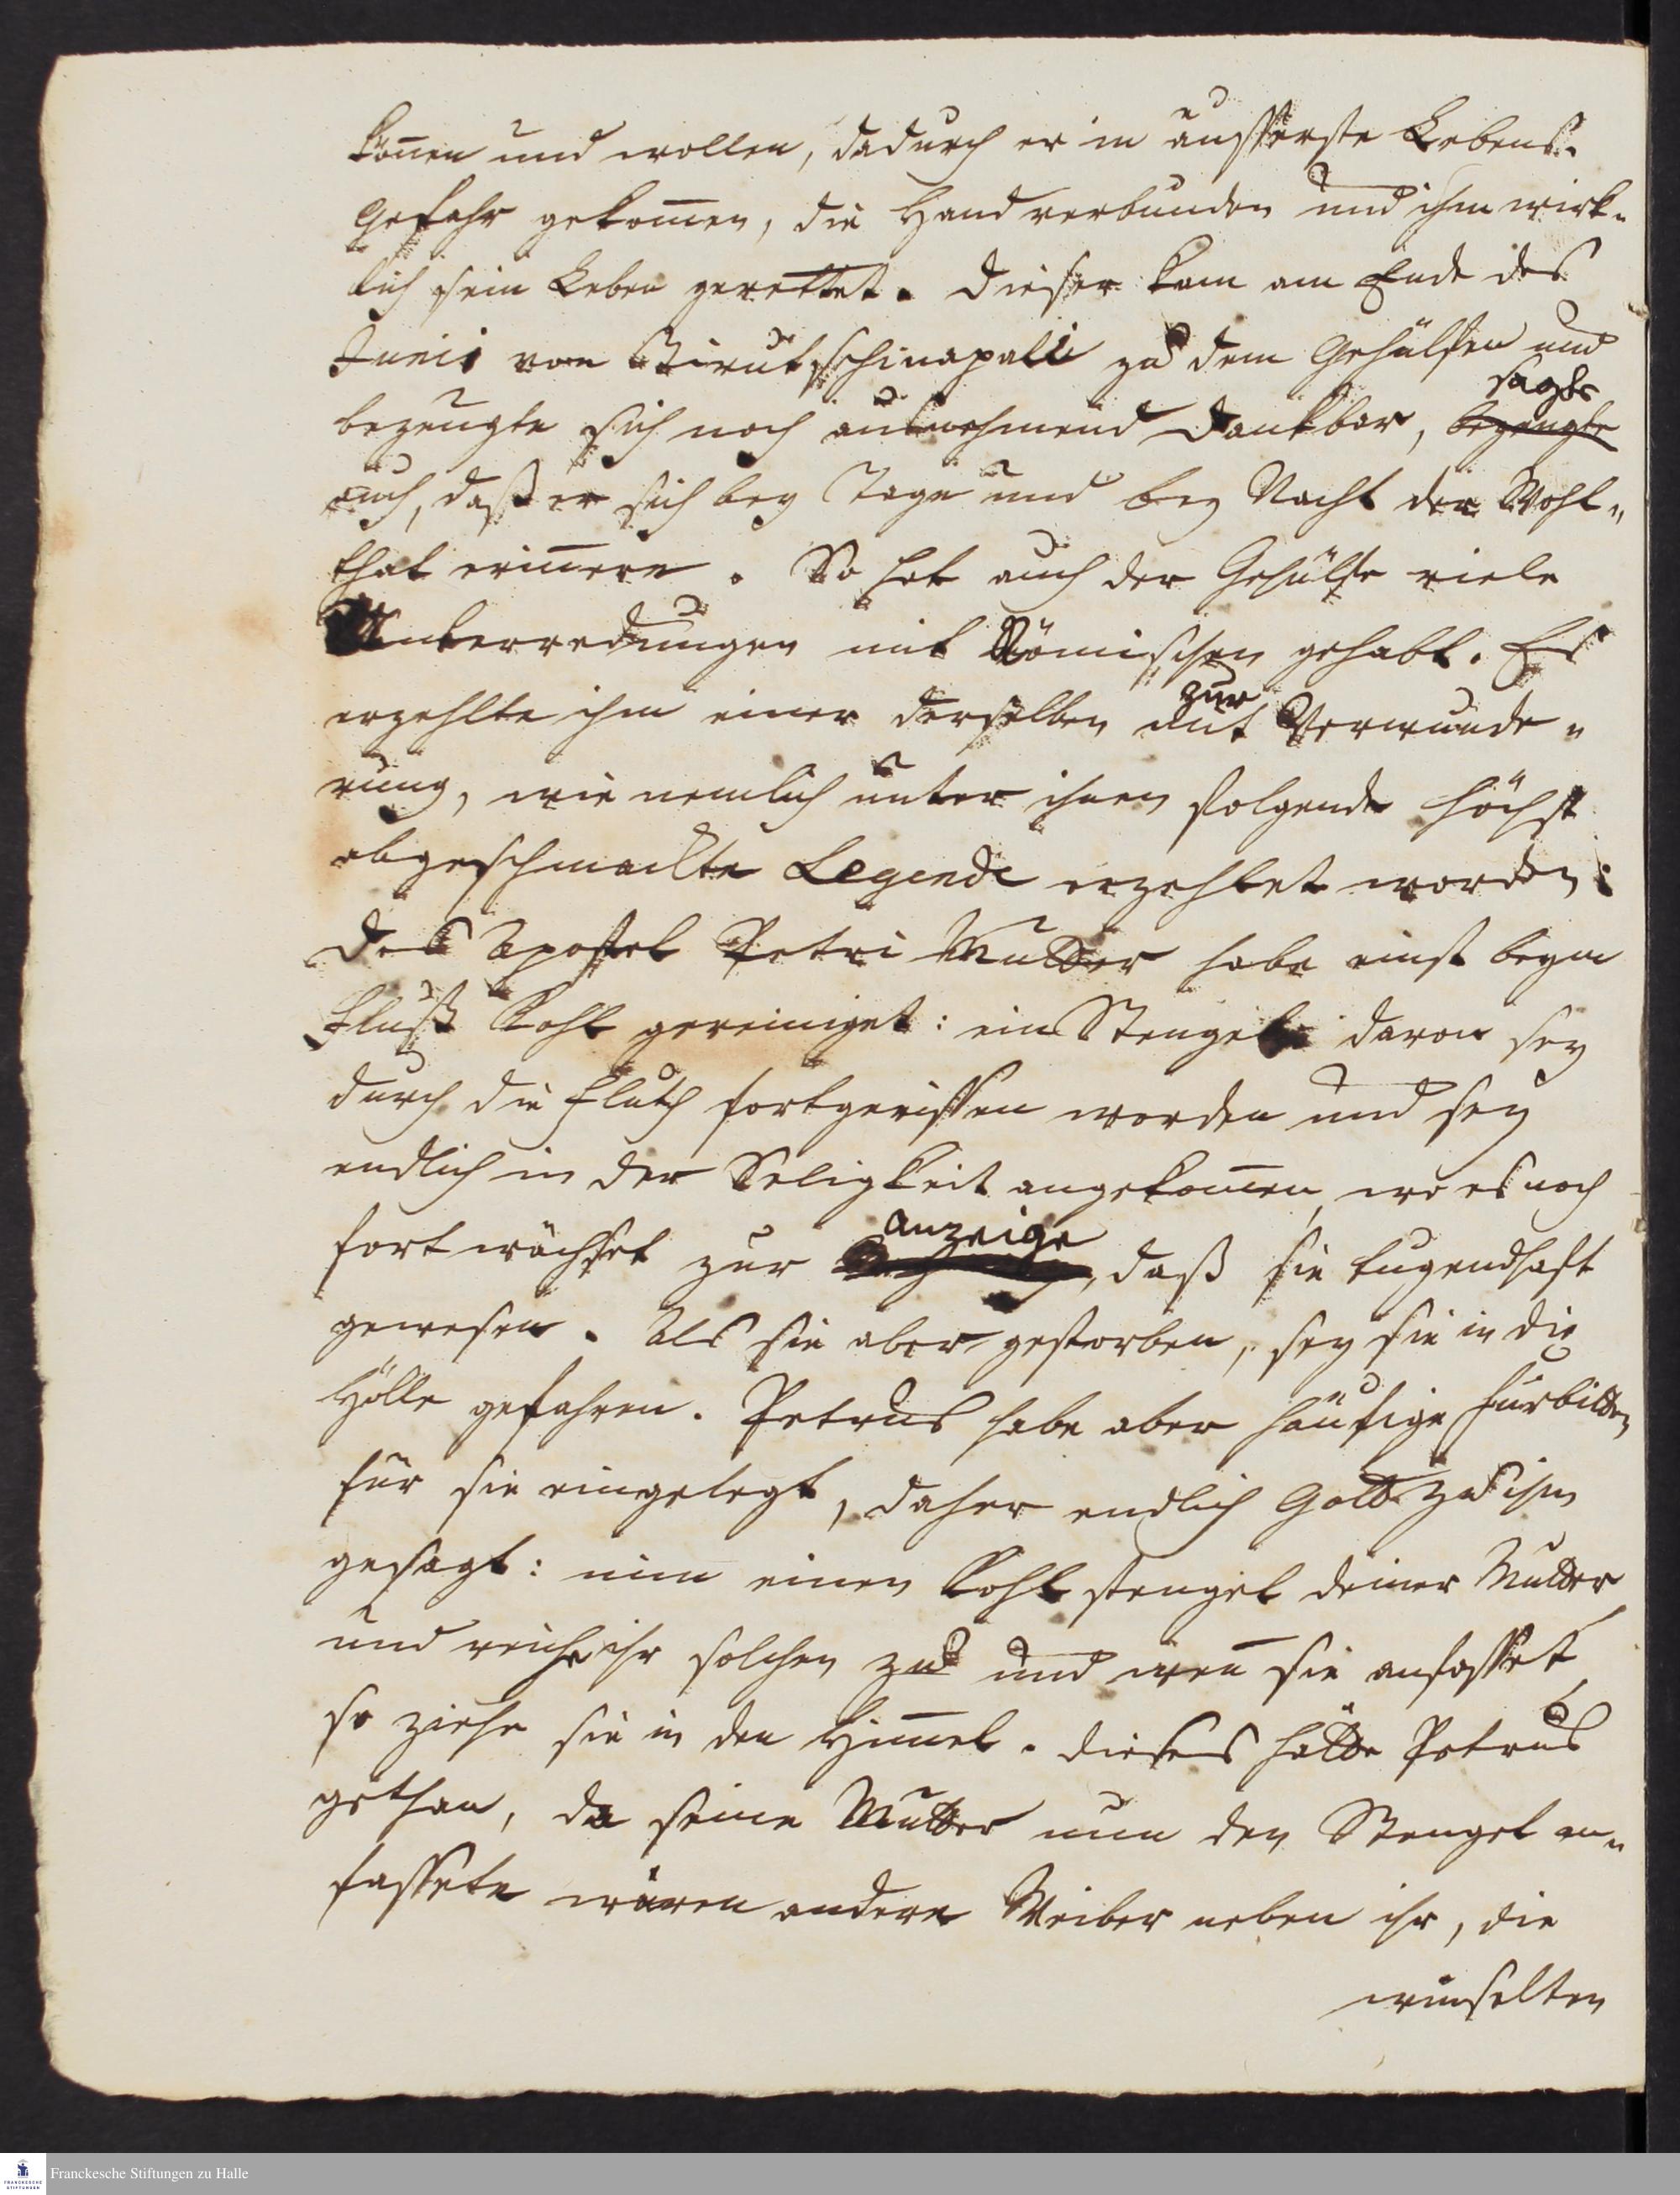 kom̄en und wollen, dadurch er in äusserste Lebens-
Gefahr gekom̄en, die Hand verbunden und ihm wirk-
lich sein Leben gerettet. Dieser kam am Ende des
Junii von Tirutschinapalli zu dem Gehülfen und
sagte
bezeugte sich noch ausnehmend dankbar, bezeugte
auch, daß er sich bey Tage und bey Nacht der Wohl-
that erin̄ere. So hat auch der Gehülfe viele
Unterredungen mit Römischen gehabt. Es
zur
erzehlte ihm einer derselben mit Verwunde-
rung, wie nemlich unter ihnen folgende höchst
abgeschmackte Legende erzehlet worden:
des Apostel Petri Mutter habe einst beym
Fluß Kohl gereiniget: ein Stengel davon sey
durch die Fluth fortgerissen worden und sey
endlich in der Seligkeit angekom̄en, wo es noch
Anzeige
fort wächset zur, daß sie tugendhaft
gewesen. Als sie aber gestorben, sey sie in die
Hölle gefahren. Petrus habe aber häufige Fürbitten
für sie eingelegt, daher endlich Gott zu ihm
gesagt: nim einen Kohl stengel deiner Mutter
und reiche ihr solchen zu und wen̄ sie anfasset
so ziehe sie in den Him̄el. Dieses hätte Petrus
gethan, da seine Mutter nun den Stengel an-
fassete wären andere Weiber neben ihr, die
winselten
Franckesche Stiftungen zu Halle
FRANCKESCHE
STIFTUNGEN